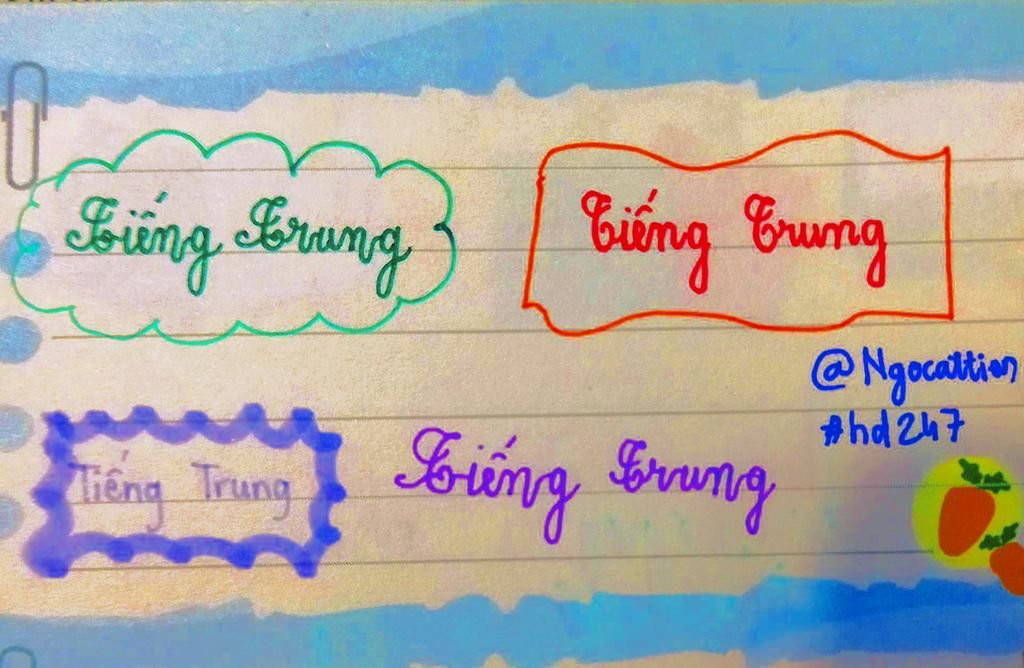 Tiếng Trung
Tiếng Trung
@Ngocattien
#hd247
Tiếng Trung
Tiếng Trung